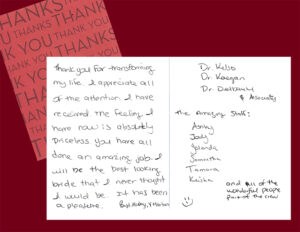 HANKS
THANK YOU
U THANKS THANK
K YOU THANKS
THANK YOU
Thank you for transforming
my life. I appreciate all
of the attention I have
received. The feeling I
have now is absolutely
Priceless. You have all
done an amazing job. I
will be the best looking
bride that I never thought
I would be. It has been
a pleasure.
Dr. Kello
Dr. Keegan
Dr.
& Associates
The Amazing Staff:
Ashley
Jody
Yolanda
Samantha
Tamara
Keisha
and all of the
wonderful people
part of the crew